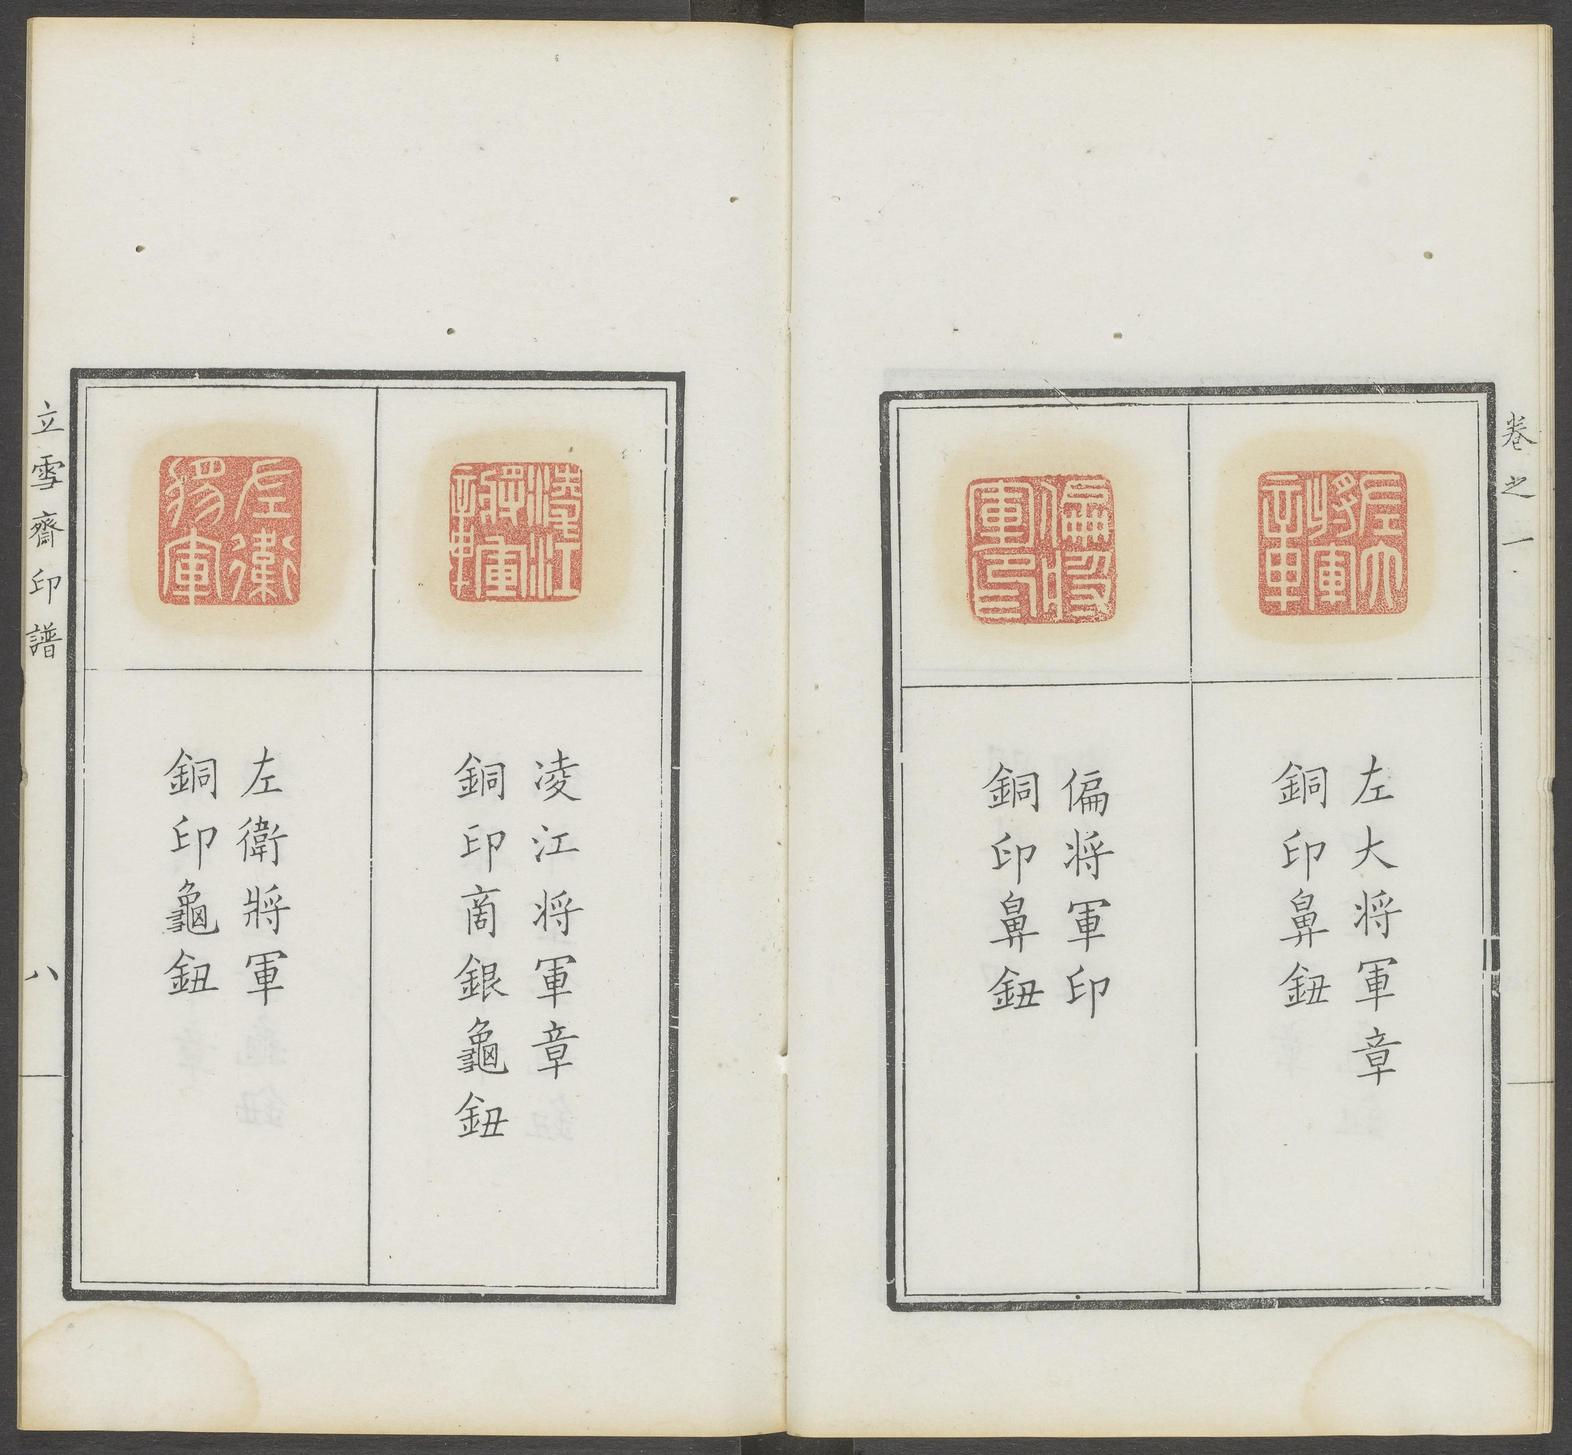 卷之一
左大将軍章
銅印鼻鈕
偏将軍印
銅印鼻鈕
凌江将軍章
銅印商銀龜鈕
左衛將軍
銅印龜鈕
立雪齋印譜
八